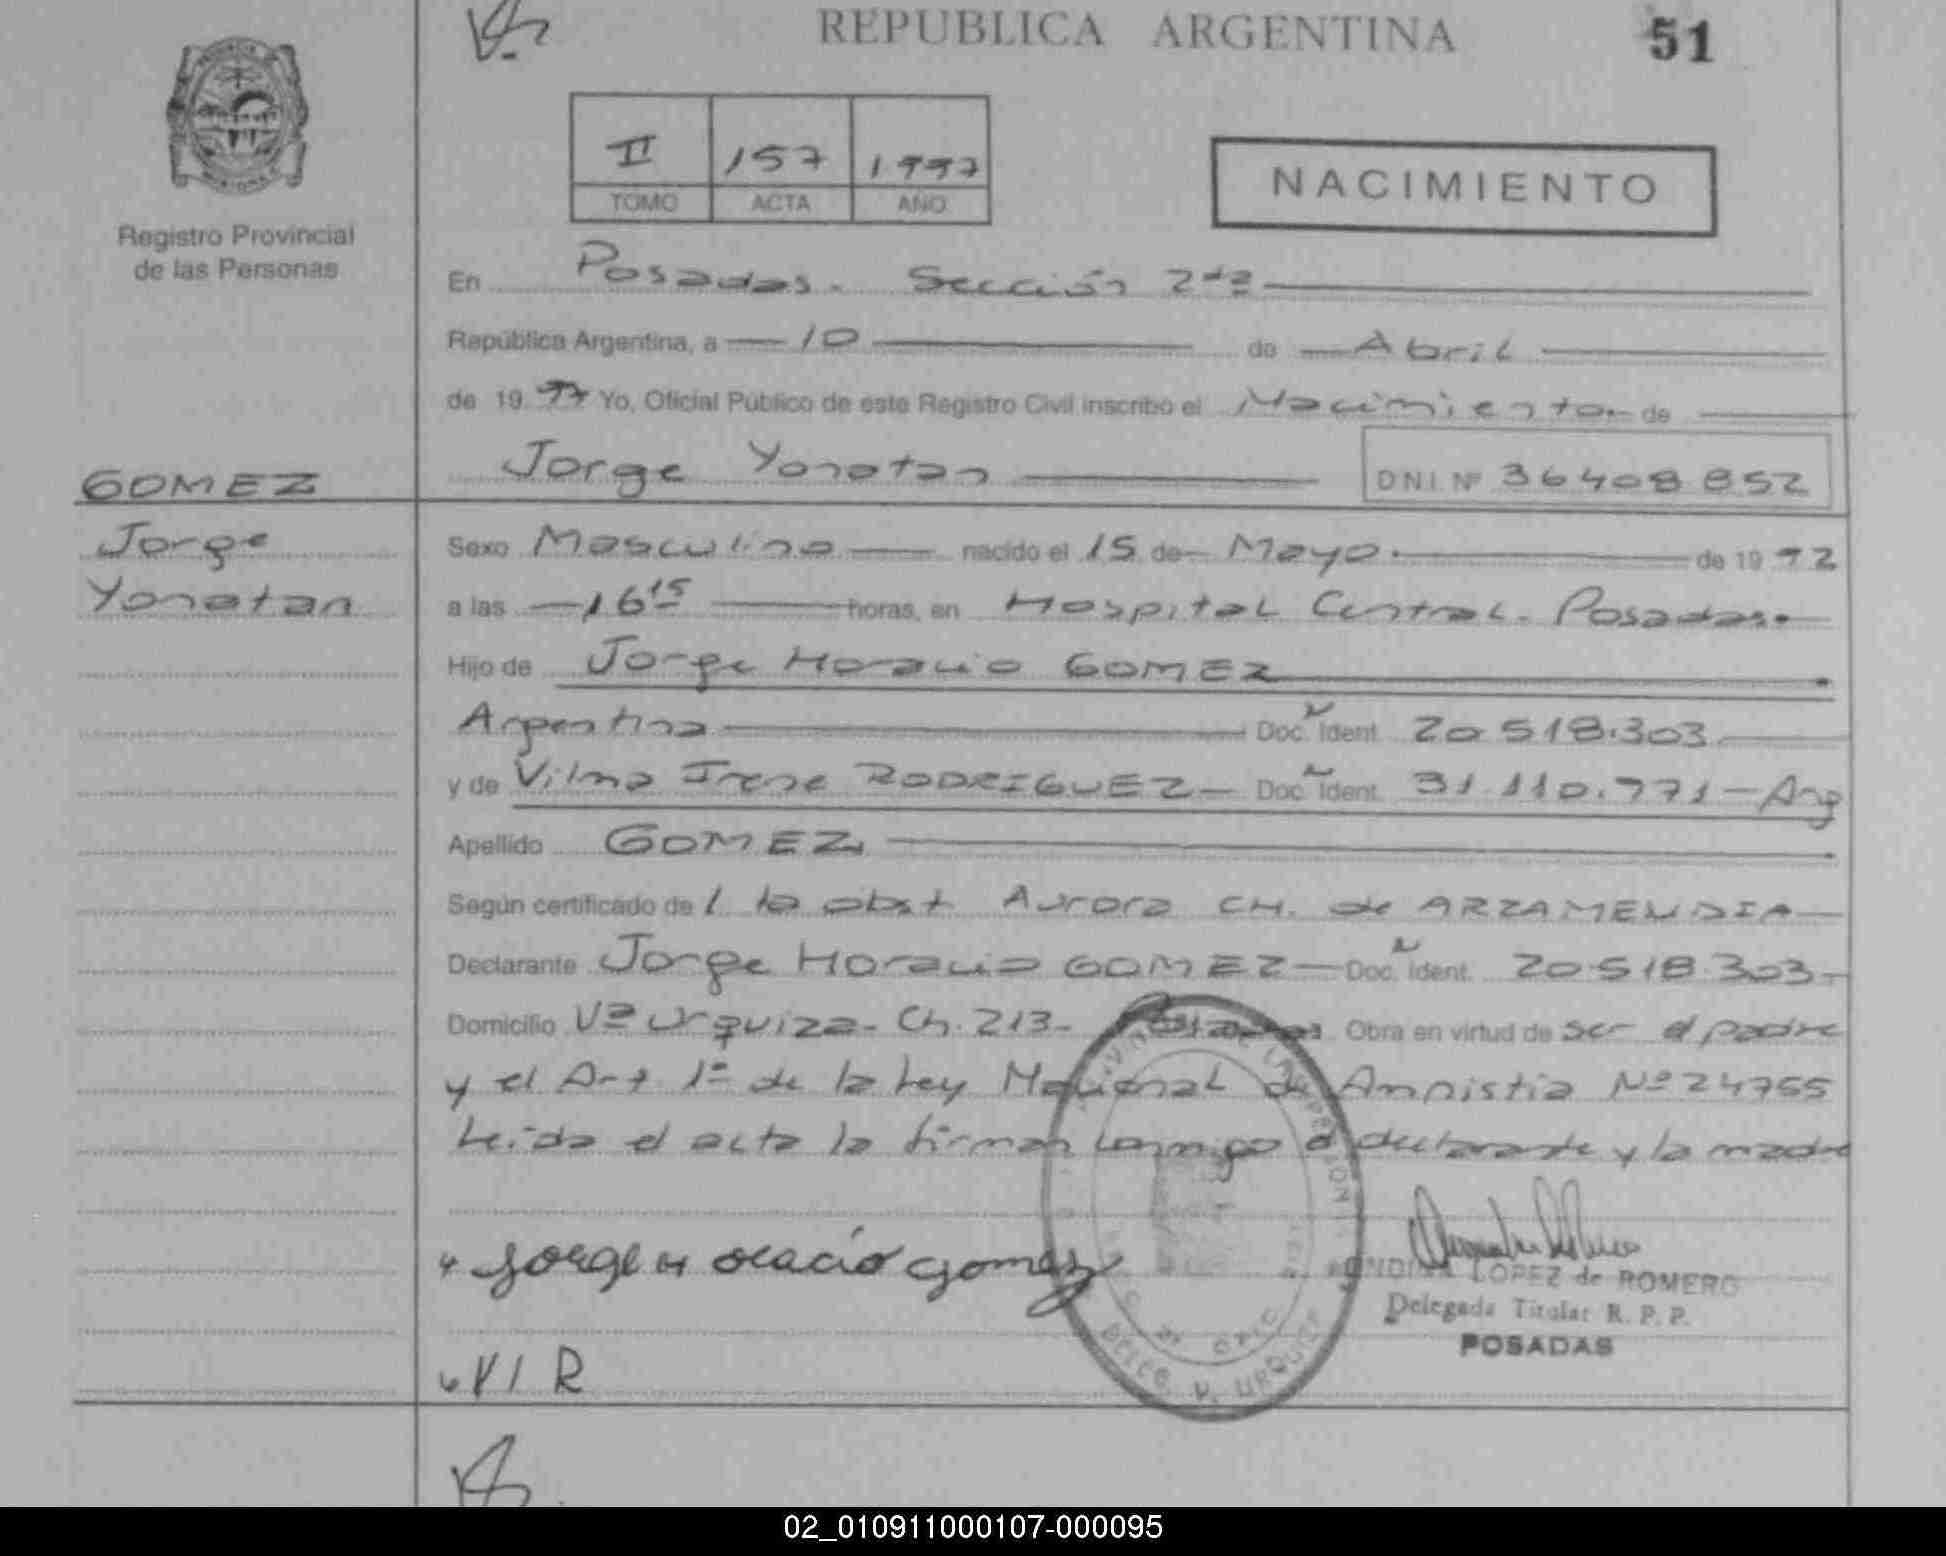 REPUBLICA ARGENTINA
51
II 157 1997
TOMO ACTA AÑO
NACIMIENTO
Registro Provincial
de las Personas
En Posadas. Sección 2da
República Argentina, a 10 de Abril
de 1997 Yo, Oficial Público de este Registro Civil inscribo el Nacimiento de
Jorge Yonatan
DNI. Nº 36408852
GOMEZ
Jorge
Yonatan
Sexo Masculino nacido el 15 de Mayo. de 1992
a las 16 15 horas, en Hospital Central. Posadas.
Hijo de Jorge Horacio GOMEZ
Argentina Doc. Ident. 20 518.303
y de Vilma Irene RODRIGUEZ Doc. Ident. 31.110.771 - Arg
Apellido GOMEZ
Según certificado de la obst Aurora CH. de ARZAMENDIA
Declarante Jorge Horacio GOMEZ Doc. Ident. 20 518.303
Domicilio Vª Urquiza. Ch. 213. Posadas Obra en virtud de ser el padre
y el Art 1º de la Ley Nacional de Amnistia Nº 24755
Leida el acta la firman conmigo el declarante y la madre
Jorge H oracio Gomez
LOPEZ de ROMERO
Delegada Titular R. P. P.
POSADAS
V I R
02_010911000107-000095